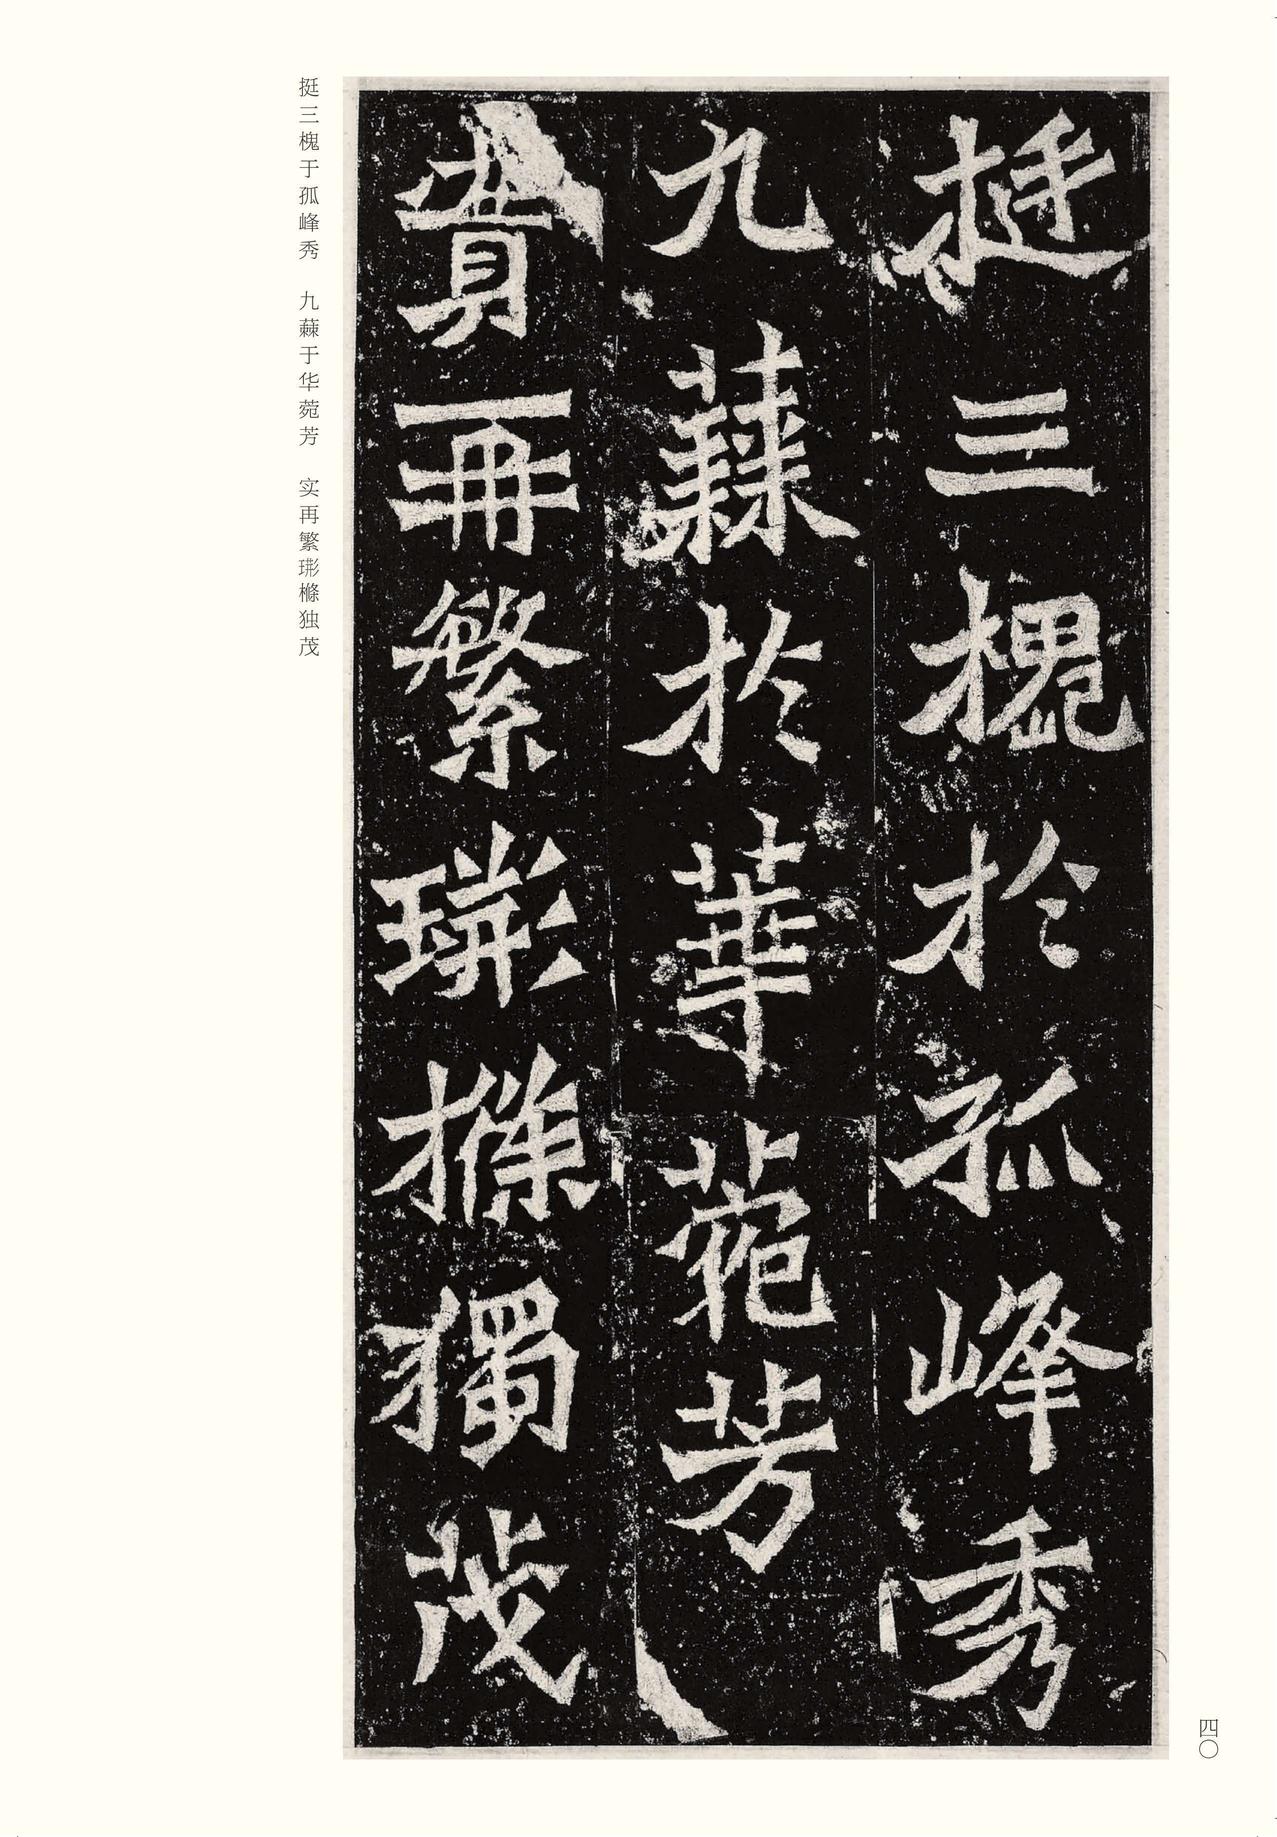 挺三槐於孤峰秀
九蕀於華菀芳
實再繁樤獨茂
挺三槐于孤峰秀　九蕀于华菀芳　实再繁樤独茂
四〇